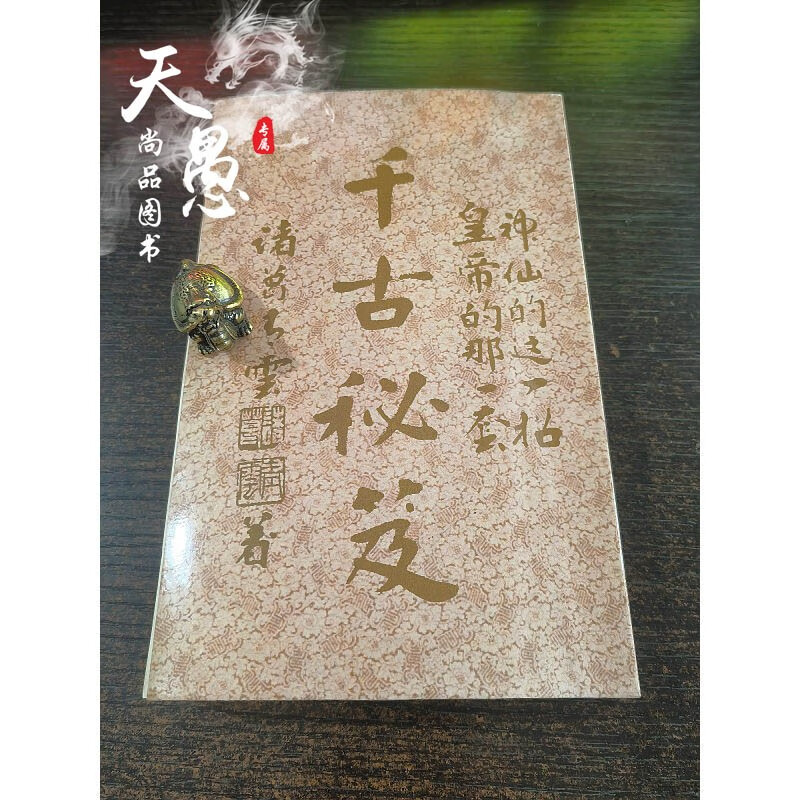 天愚
尚品图书
专属
神仙的这一招
皇帝的那一套
千古秘笈
诸葛青雲
著